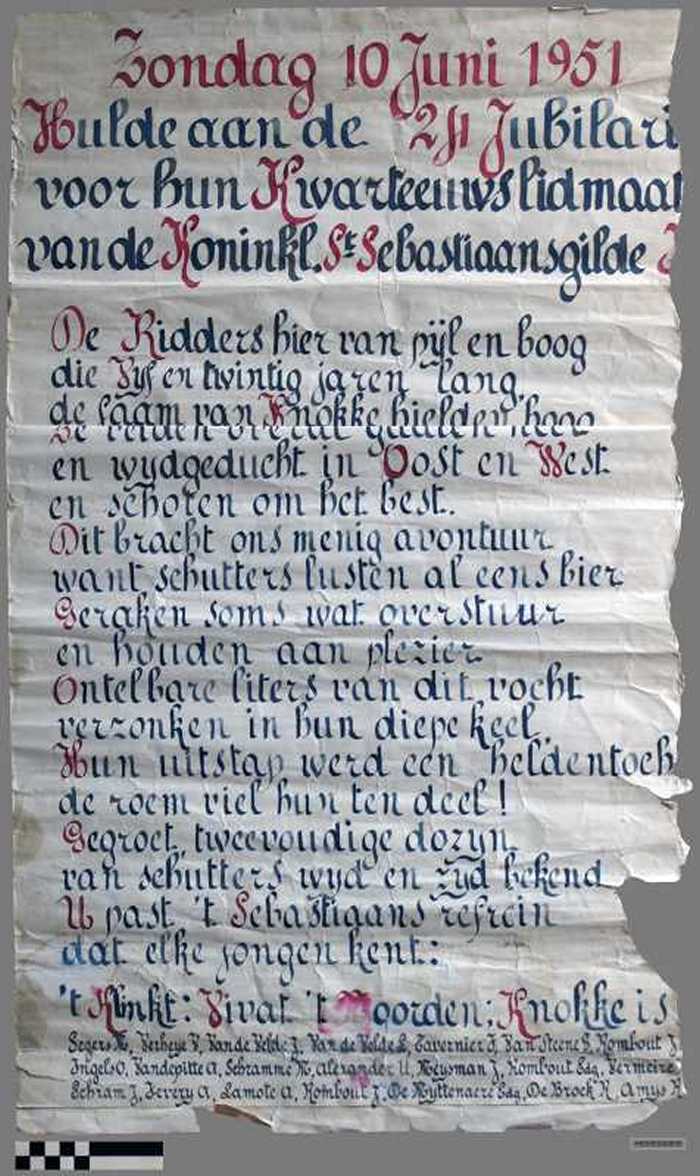 Zondag 10 Juni 1951
Hulde aan de 24 Jubilari
voor hun Kwarteeuws lidmaat
van de Koninkl. St Sebastiaansgilde
De Ridders hier van pijl en boog
die Vijf en twintig jaren lang.
de faam van Knokke hielden hoog
en wydgeducht in Oost en West
en schoten om het best.
Dit bracht ons menig avontuur
want schutters lusten al eens bier
Geraken soms wat overstuur
en houden aan plezier
Ontelbare liters van dit vocht
verzonken in hun diepe keel.
Hun uitstap werd een heldentoch
de roem viel hun ten deel!
Gegroet, tweevoudige dozyn.
van schutters wyd en zyd bekend
U past 't Sebastiaans refrein
dat elke jongen kent:
't Klinkt: Vivat 't Noorden; Knokke is
Segers M, Verheye V, Van de Velde J, Van de Velde L, Tavernier J, Van Steene S, Rombout J
Ingels O, Vandepitte A, Schramme M, Alexander U, Meysman J, Rombout Edg, Vermeire
Schram J, Severy A, Lamote A, Rombout J, De Wyttenaere Edg, De Broek H, Amys